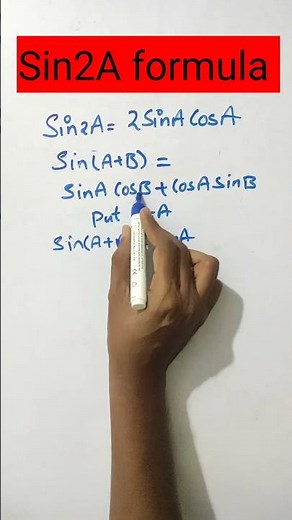 Sin2A formula
Sin2A = 2SinA CosA
Sin(A+B) =
SinA CosB + CosA SinB
Put A
Sin(A+ A